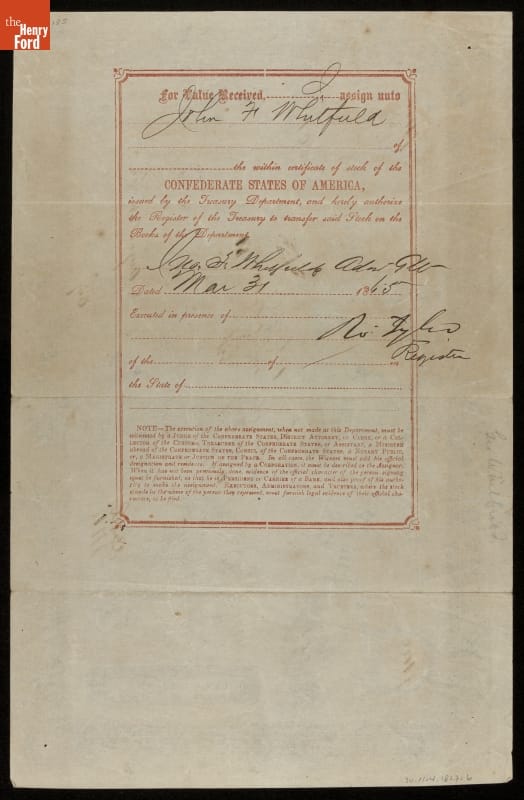 the
Henry
Ford
For Value Received, I assign unto
John F Whitfield
of
the within certificate of stock of the
CONFEDERATE STATES OF AMERICA,
issued by the Treasury Department, and hereby authorize
the Register of the Treasury to transfer said Stock on the
Books of the Department.
F. Whitfield Adm
Dated Mar 31 1865
Executed in presence of
Ro: Tyler
Register
of the of in
the State of
NOTE—The execution of the above assignment, when not made at this Department, must be
witnessed by a JUDGE OF THE CONFEDERATE STATES, DISTRICT ATTORNEY, OR CLERK, OR A COL-
LECTOR OF THE CUSTOMS, TREASURER OF THE CONFEDERATE STATES, OR ASSISTANT, A MINISTER
abroad OF THE CONFEDERATE STATES, CONSUL OF THE CONFEDERATE STATES, A NOTARY PUBLIC,
OR, A MAGISTRATE OR JUSTICE OF THE PEACE. In all cases the Witness must add his official
designation and residence. If assigned by a CORPORATION, it must be described as the Assignor.
When it has not been previously done, evidence of the official character of the person signing
must be furnished, as that he is PRESIDENT OR CASHIER OF A BANK, and also proof of his autho-
rity to make the assignment. EXECUTORS, ADMINISTRATORS, AND TRUSTEES, where the stock
stands in the name of the person they represent, must furnish legal evidence of their official cha-
racter, to be filed.